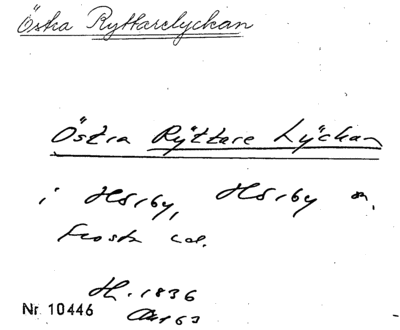 Östra Ryttarelyckan
Östra Ryttare Lyckan
i Hörby, Hörby sn,
Frosta hd.
Hl. 1836
Akt 63
Nr 10446